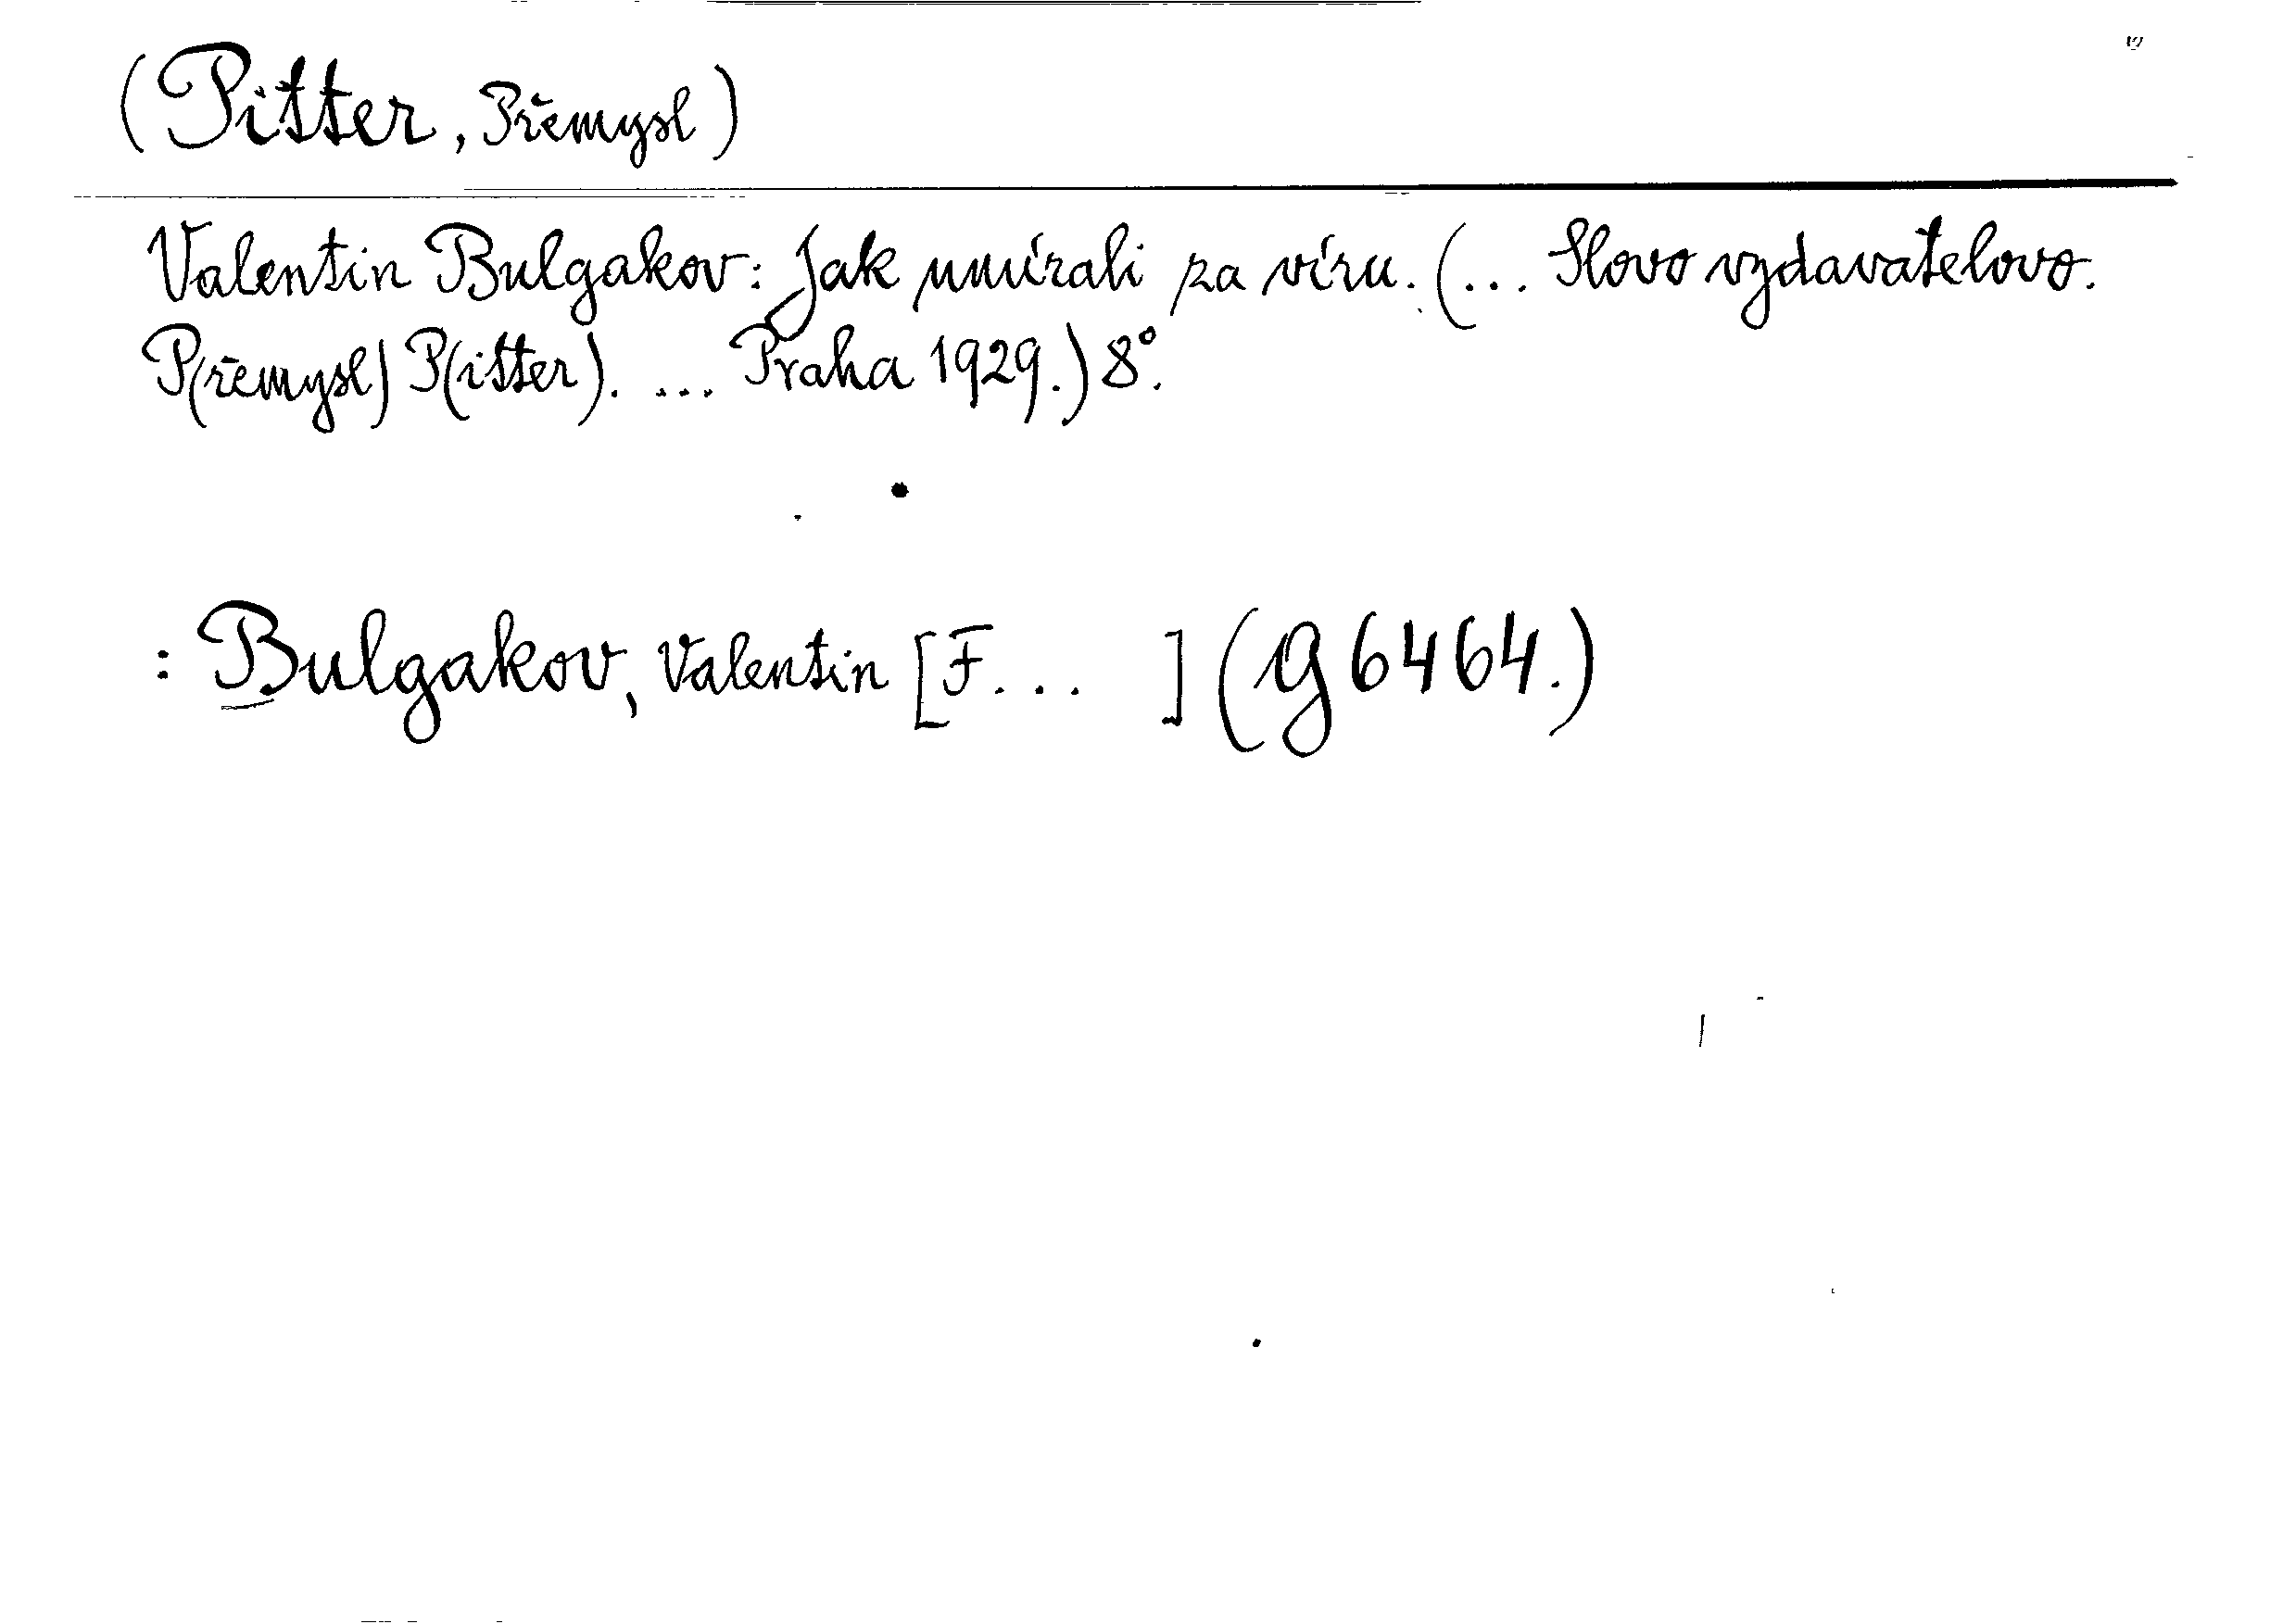 (Pitter, Přemysl)
Valentin Bulgakov: Jak umírali za víru. (... Slovo vydavatelovo.
P(řemysl) P(itter). ... Praha 1929.) 8°.
: Bulgakov, Valentin [F... ] (g 6464.)